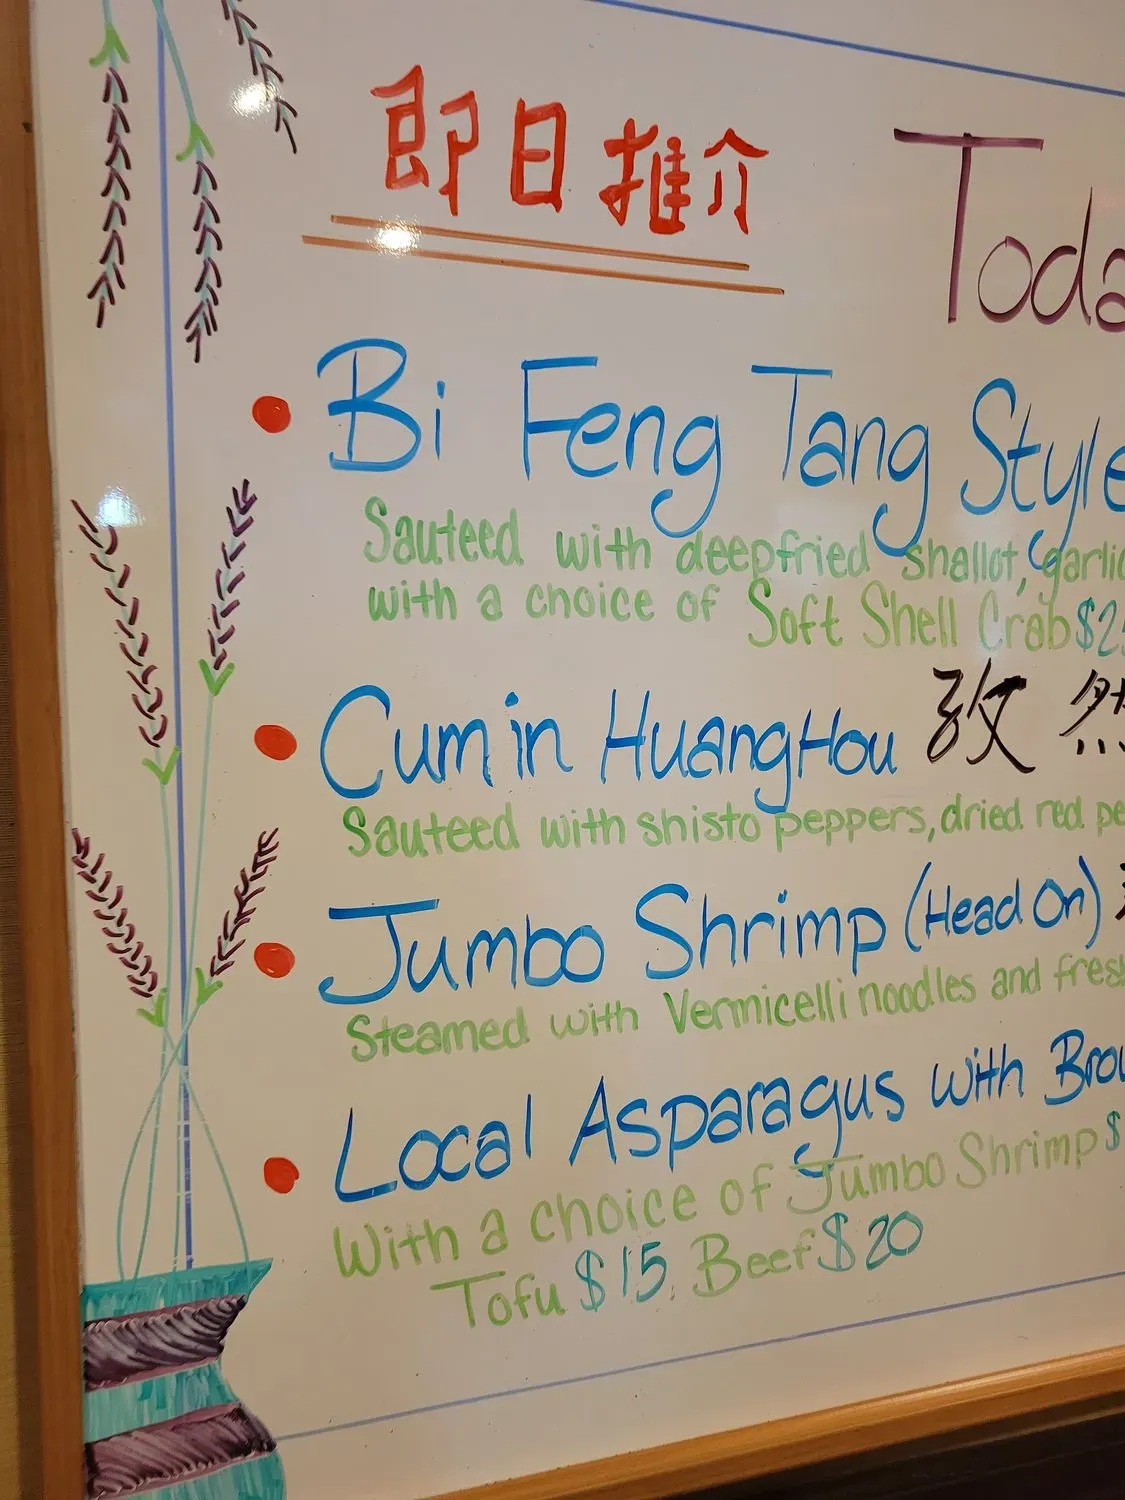 即日推介
Toda
Bi Feng Tang Style
Sauteed with deepfried shallot, garlic
with a choice of Soft Shell Crab $25
Cumin HuangHou 孜然
Sauteed with shisto peppers, dried red pe
Jumbo Shrimp (Head On)
Steamed with Vermicelli noodles and fres
Local Asparagus with Brow
With a choice of Jumbo Shrimp $
Tofu $15. Beef $20